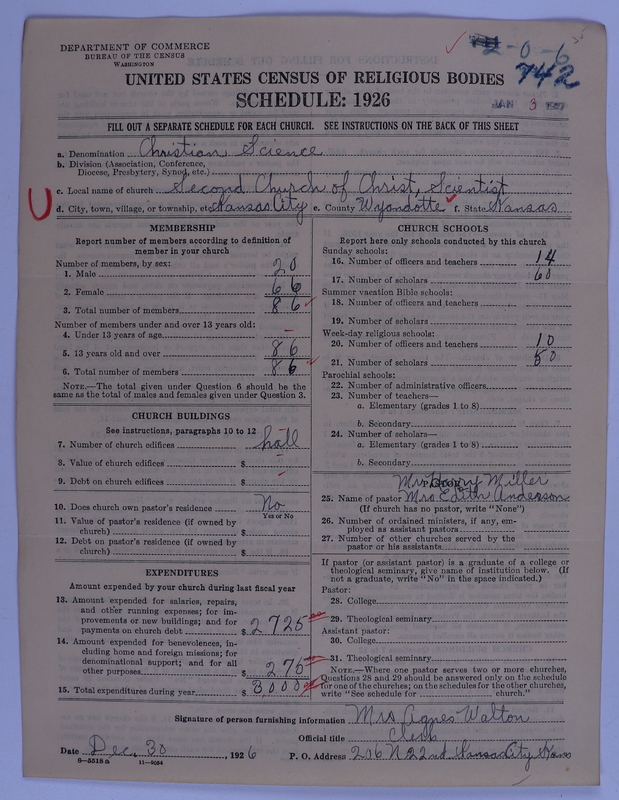 DEPARTMENT OF COMMERCE
BUREAU OF THE CENSUS
WASHINGTON
2-0-6
742
UNITED STATES CENSUS OF RELIGIOUS BODIES
SCHEDULE: 1926
JAN 3 1927
FILL OUT A SEPARATE SCHEDULE FOR EACH CHURCH. SEE INSTRUCTIONS ON THE BACK OF THIS SHEET
a. Denomination Christian Science
b. Division (Association, Conference,
Diocese, Presbytery, Synod, etc.)
c. Local name of church Second Church of Christ, Scientist
d. City, town, village, or township, etc. Kansas City e. County Wyandotte f. State Kansas
MEMBERSHIP
Report number of members according to definition of
member in your church
Number of members, by sex:
1. Male 20
2. Female 66
3. Total number of members 86
Number of members under and over 13 years old:
4. Under 13 years of age –
5. 13 years old and over 86
6. Total number of members 86
NOTE.—The total given under Question 6 should be the
same as the total of males and females given under Question 3.
CHURCH BUILDINGS
See instructions, paragraphs 10 to 12
7. Number of church edifices hall
8. Value of church edifices $ –
9. Debt on church edifices $ –
10. Does church own pastor's residence No
Yes or No
11. Value of pastor's residence (if owned by
church) $
12. Debt on pastor's residence (if owned by
church) $
EXPENDITURES
Amount expended by your church during last fiscal year
13. Amount expended for salaries, repairs,
and other running expenses; for im-
provements or new buildings; and for
payments on church debt $ 2725 00
14. Amount expended for benevolences, in-
cluding home and foreign missions; for
denominational support; and for all
other purposes $ 275
15. Total expenditures during year $ 3,000 00
CHURCH SCHOOLS
Report here only schools conducted by this church
Sunday schools:
16. Number of officers and teachers 14
17. Number of scholars 60
Summer vacation Bible schools:
18. Number of officers and teachers
19. Number of scholars
Week-day religious schools:
20. Number of officers and teachers 10
21. Number of scholars 50
Parochial schools:
22. Number of administrative officers
23. Number of teachers—
a. Elementary (grades 1 to 8)
b. Secondary
24. Number of scholars—
a. Elementary (grades 1 to 8)
b. Secondary
Mrs Harry Miller
25. Name of pastor Mrs Edith Anderson
(If church has no pastor, write "None")
26. Number of ordained ministers, if any, em-
ployed as assistant pastors
27. Number of other churches served by the
pastor or his assistants
If pastor (or assistant pastor) is a graduate of a college or
theological seminary, give name of institution below. (If
not a graduate, write "No" in the space indicated.)
Pastor:
28. College
29. Theological seminary
Assistant pastor:
30. College
31. Theological seminary
NOTE.—Where one pastor serves two or more churches,
Questions 28 and 29 should be answered only on the schedule
for one of the churches; on the schedules for the other churches,
write "See schedule for church."
Signature of person furnishing information Mrs Agnes Walton
Official title Clerk
Date Dec. 30, 1926 P. O. Address 206 N 22nd Kansas City Kans
8—5518 a 11—9054